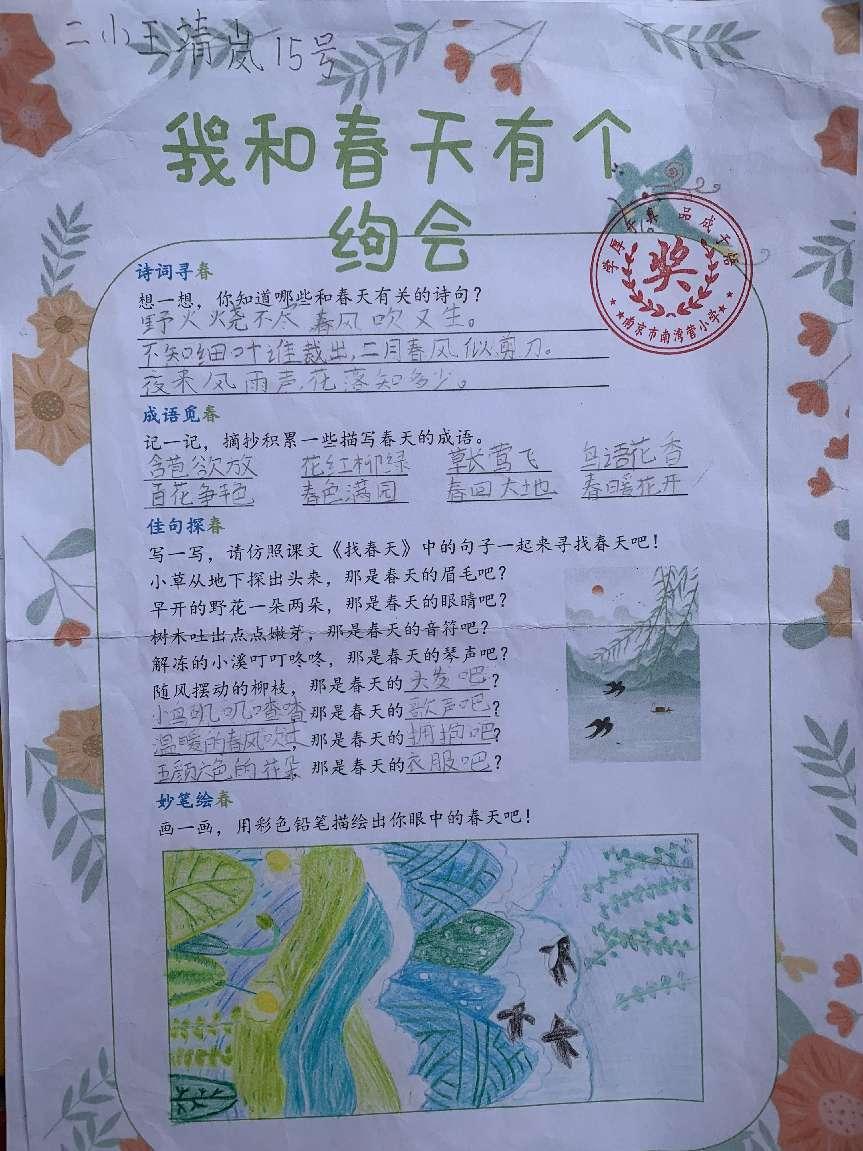 二小王靖岚15号
我和春天有个
绚会
奖
南京市南湾营小学
诗词寻春
想一想，你知道哪些和春天有关的诗句？
野火烧不尽 春风吹又生。
不知细叶谁裁出，二月春风似剪刀。
夜来风雨声，花落知多少。
成语觅春
记一记，摘抄积累一些描写春天的成语。
含苞欲放 花红柳绿 草长莺飞 鸟语花香
百花争艳 春色满园 春回大地 春暖花开
佳句探春
写一写，请仿照课文《找春天》中的句子一起来寻找春天吧！
小草从地下探出头来，那是春天的眉毛吧？
早开的野花一朵两朵，那是春天的眼睛吧？
树木吐出点点嫩芽，那是春天的音符吧？
解冻的小溪叮叮咚咚，那是春天的琴声吧？
随风摆动的柳枝，那是春天的头发吧？
小鸟叽叽喳喳那是春天的歌声吧？
温暖的春风吹过，那是春天的拥抱吧？
五颜六色的花朵，那是春天的衣服吧？
妙笔绘春
画一画，用彩色铅笔描绘出你眼中的春天吧！